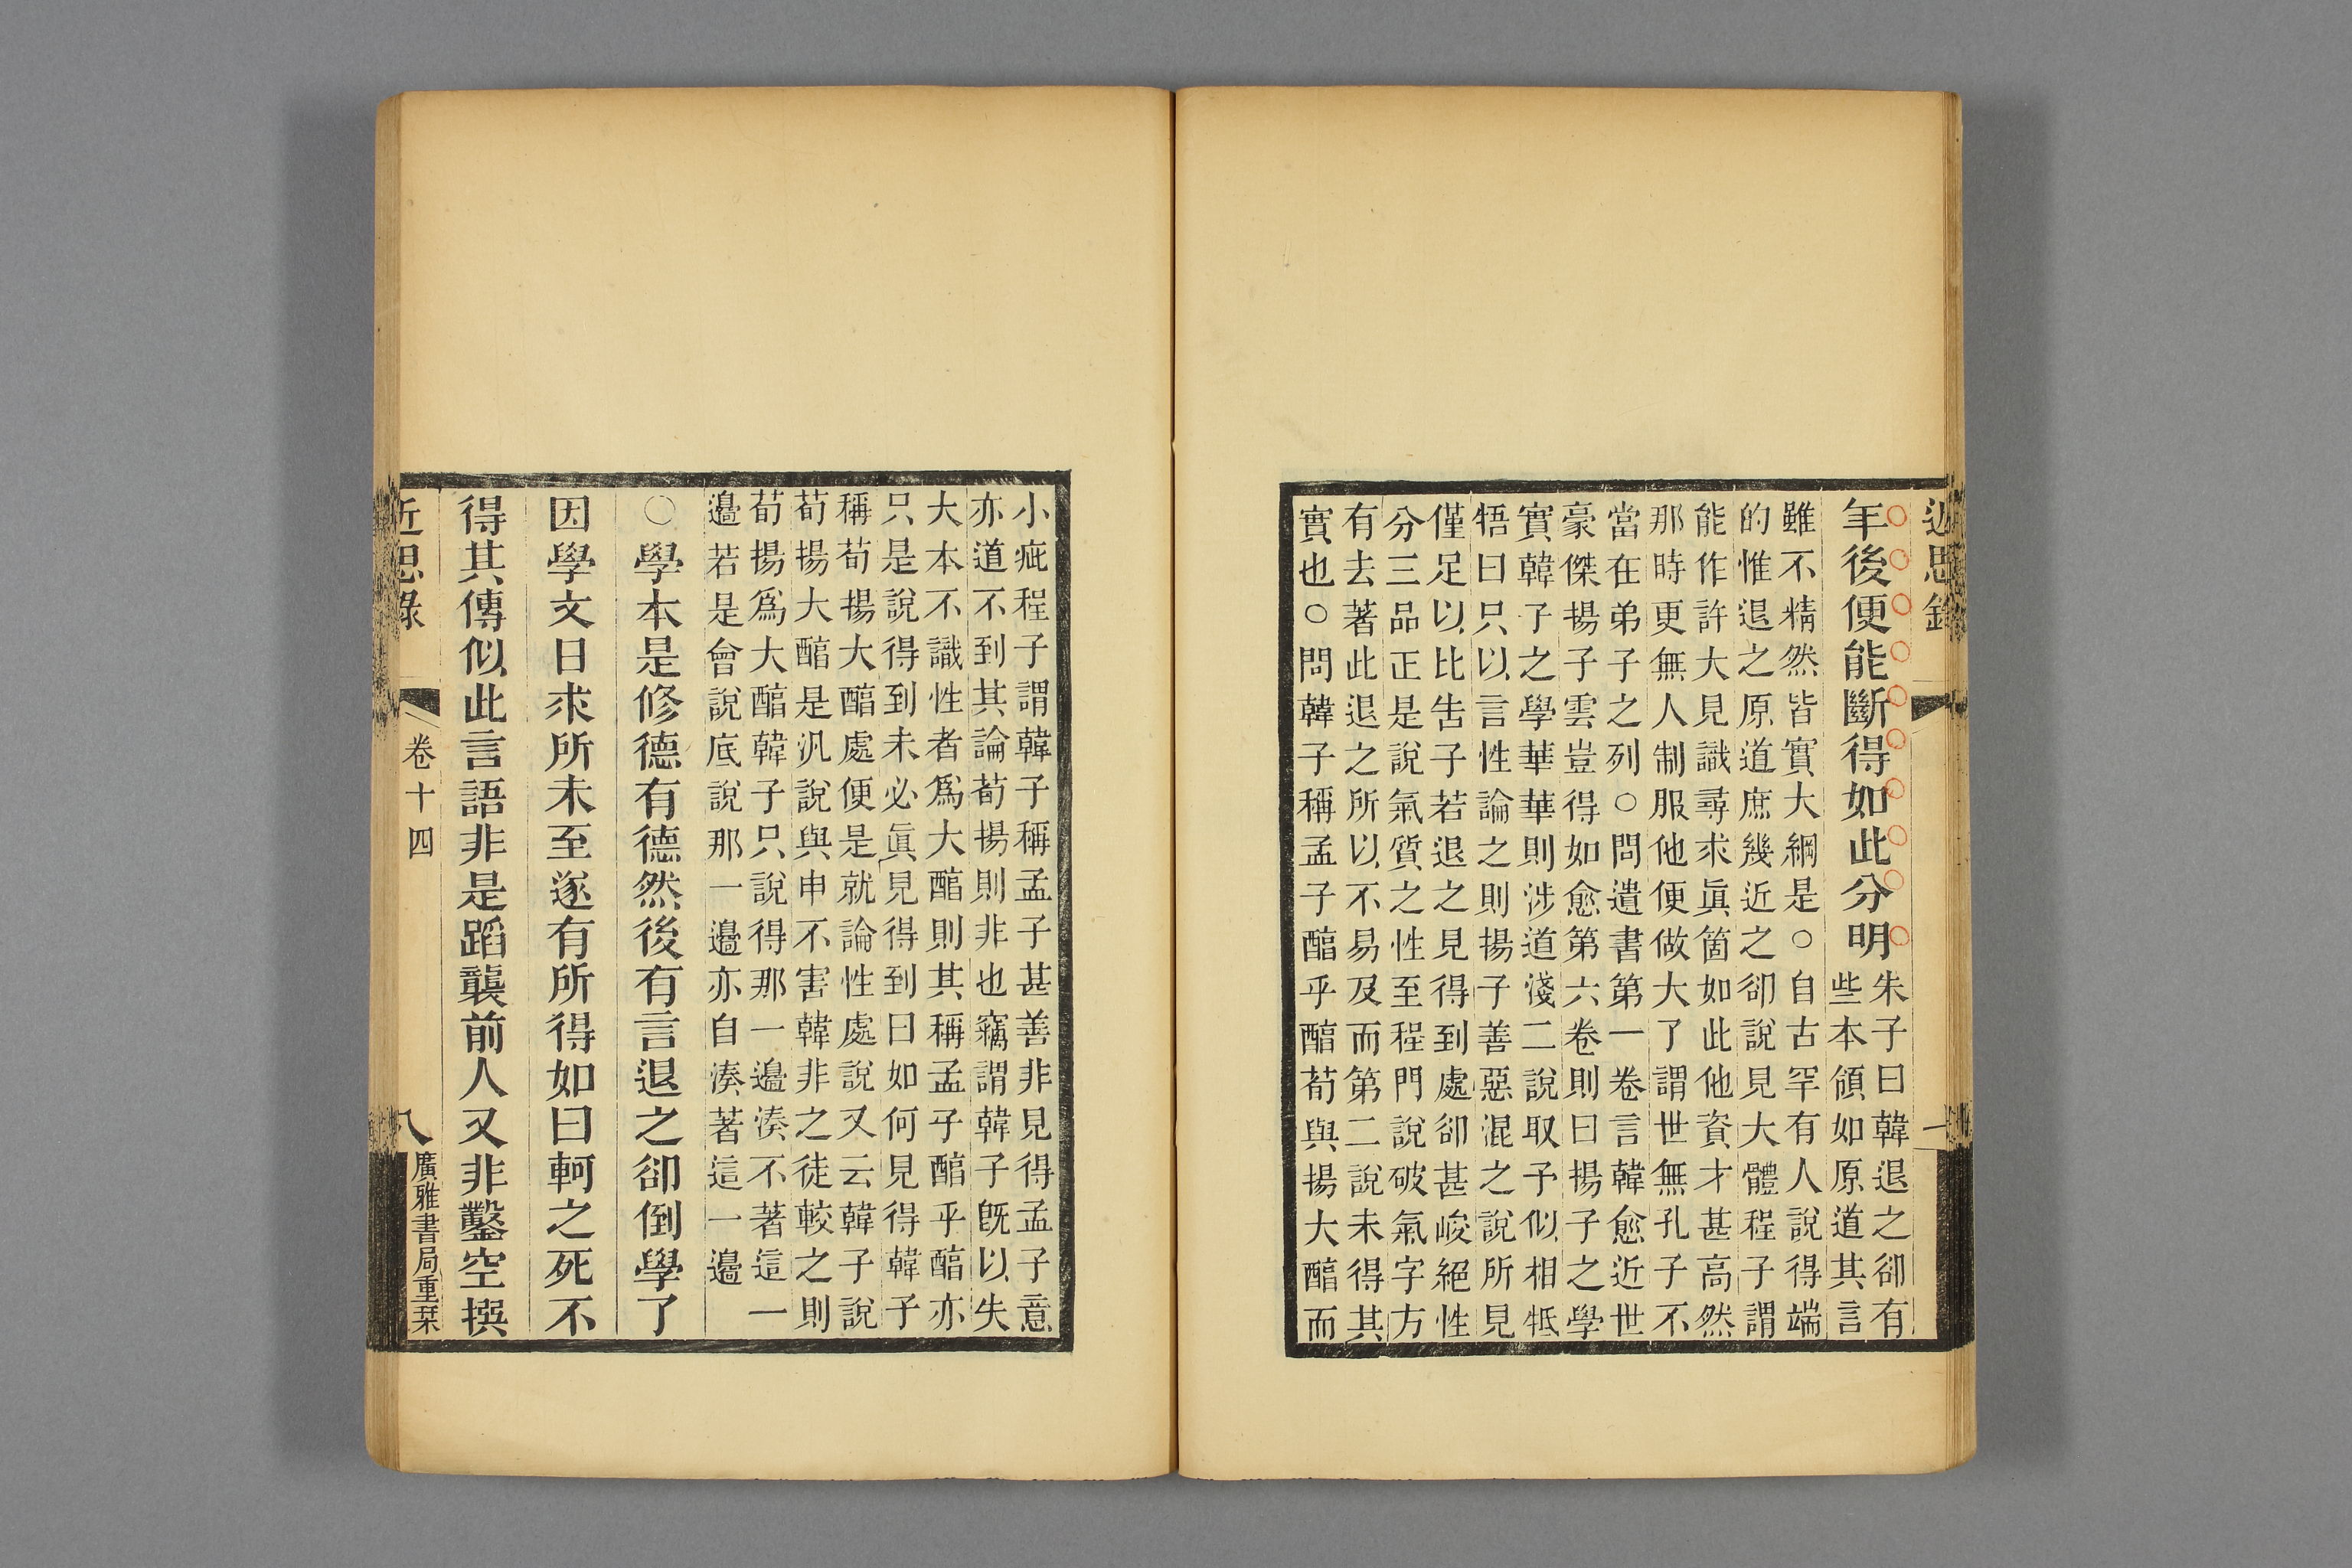 近思錄
年後便能斷得如此分明
朱子曰韓退之卻有
些本領如原道其言
雖不精然皆實大綱是○自古罕有人說得端
的惟退之原道庶幾近之卻說見大體程子謂
能作許大見識尋求眞箇如此他資才甚高然
那時更無人制服他便做大了謂世無孔子不
當在弟子之列○問遺書第一卷言韓愈近世
豪傑揚子雲豈得如愈第六卷則曰揚子之學
實韓子之學華華則涉道淺二說取予似相牴
牾曰只以言性論之則揚子善惡混之說所見
僅足以比告子若退之見得到處卻甚峻絕性
分三品正是說氣質之性至程門說破氣字方
有去著此退之所以不易及而第二說未得其
實也○問韓子稱孟子醕乎醕荀與揚大醕而
小疵程子謂韓子稱孟子甚善非見得孟子意
亦道不到其論荀揚則非也竊謂韓子旣以失
大本不識性者爲大醕則其稱孟子醕乎醕亦
只是說得到未必眞見得到曰如何見得韓子
稱荀揚大醕處便是就論性處說又云韓子說
荀揚大醕是汎說與申不害韓非之徒較之則
荀揚爲大醕韓子只說得那一邉湊不著這一
邉若是會說底說那一邉亦自湊著這一邉
○學本是修德有德然後有言退之卻倒學了
因學文日求所未至遂有所得如曰軻之死不
得其傳似此言語非是蹈襲前人又非鑿空撰
近思錄
卷十四
八
廣雅書局重栞